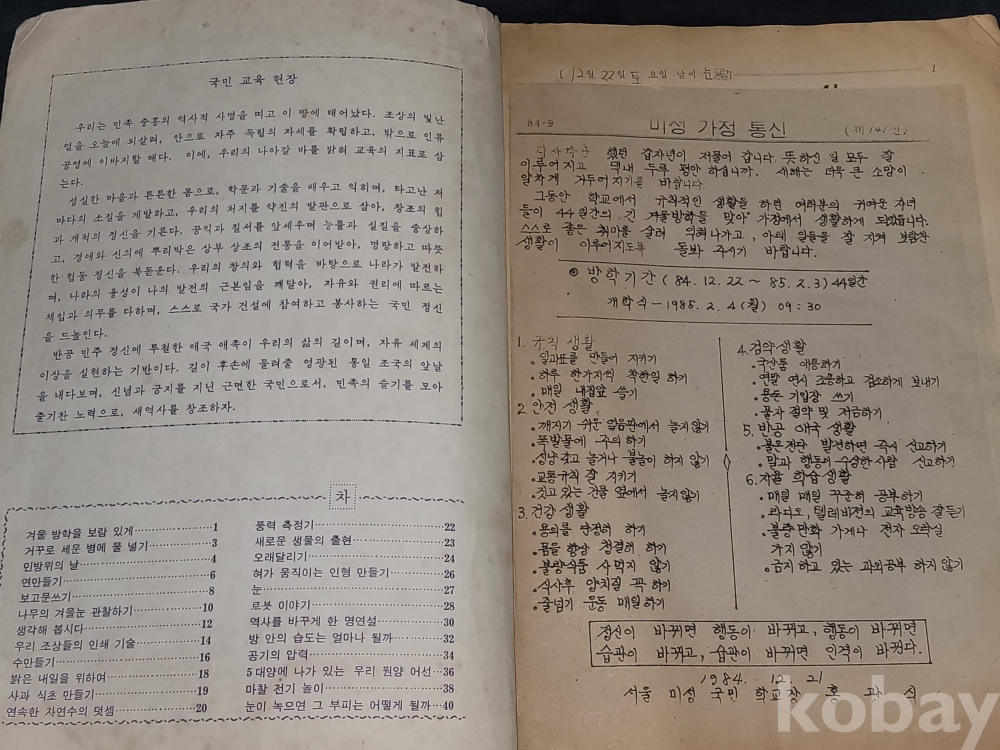 국민 교육 헌장
우리는 민족 중흥의 역사적 사명을 띠고 이 땅에 태어났다. 조상의 빛난
얼을 오늘에 되살려, 안으로 자주 독립의 자세를 확립하고, 밖으로 인류
공영에 이바지할 때다. 이에, 우리의 나아갈 바를 밝혀 교육의 지표로 삼
는다.
성실한 마음과 튼튼한 몸으로, 학문과 기술을 배우고 익히며, 타고난 저
마다의 소질을 계발하고, 우리의 처지를 약진의 발판으로 삼아, 창조의 힘
과 개척의 정신을 기른다. 공익과 질서를 앞세우며 능률과 실질을 숭상하
고, 경애와 신의에 뿌리박은 상부 상조의 전통을 이어받아, 명랑하고 따뜻
한 협동 정신을 북돋운다. 우리의 창의와 협력을 바탕으로 나라가 발전하
며, 나라의 융성이 나의 발전의 근본임을 깨달아, 자유와 권리에 따르는
책임과 의무를 다하며, 스스로 국가 건설에 참여하고 봉사하는 국민 정신
을 드높인다.
반공 민주 정신에 투철한 애국 애족이 우리의 삶의 길이며, 자유 세계의
이상을 실현하는 기반이다. 길이 후손에 물려줄 영광된 통일 조국의 앞날
을 내다보며, 신념과 긍지를 지닌 근면한 국민으로서, 민족의 슬기를 모아
줄기찬 노력으로, 새역사를 창조하자.
차
겨울 방학을 보람 있게 1
거꾸로 세운 병에 물 넣기 3
민방위의 날 4
연만들기 6
보고문쓰기 8
나무의 겨울눈 관찰하기 10
생각해 봅시다 12
우리 조상들의 인쇄 기술 14
수만들기 16
밝은 내일을 위하여 18
사과 식초 만들기 19
연속한 자연수의 덧셈 20
풍력 측정기 22
새로운 생물의 출현 23
오래달리기 24
혀가 움직이는 인형 만들기 26
눈 27
로봇 이야기 28
역사를 바꾸게 한 명연설 30
방 안의 습도는 얼마나 될까 32
공기의 압력 34
5대양에 나가 있는 우리 원양 어선 36
마찰 전기 놀이 38
눈이 녹으면 그 부피는 어떻게 될까 40
12월 22일 토 요일 날씨
1
84-9
미성 가정 통신
(제 141신)
다사다난 했던 갑자년이 저물어 갑니다. 뜻하신 일 모두 잘
이루어지고 댁내 두루 평안 하십니까. 새해는 더욱 큰 소망이
알차게 거두어지기를 바랍니다.
그동안 학교에서 규칙적인 생활을 하던 여러분의 귀여운 자녀
들이 44일간의 긴 겨울방학을 맞아 가정에서 생활하게 되었읍니다.
스스로 좋은 취미를 살려 익혀나가고, 아래 일들을 잘 지켜 보람찬
생활이 이루어지도록 돌봐 주시기 바랍니다.
◎ 방학기간 (84. 12. 22 ~ 85. 2. 3) 44일간
개학식 - 1985. 2. 4 (월) 09 : 30
1. 규칙 생활
• 일과표를 만들어 지키기
• 하루 한가지씩 착한일 하기
• 매일 내집앞 쓸기
2. 안전 생활
• 깨지기 쉬운 얼음판에서 놀지않기
• 폭발물에 주의 하기
• 성냥 갖고 놀거나 불놀이 하지 않기
• 교통규칙 잘 지키기
• 짓고 있는 건물 옆에서 놀지않기
3. 건강 생활
• 용의를 단정히 하기
• 몸을 항상 청결히 하기
• 불량식품 사먹지 않기
• 식사후 양치질 꼭 하기
• 줄넘기 운동 매일하기
4. 검약 생활
• 국산품 애용하기
• 연말 연시 조용하고 검소하게 보내기
• 용돈 기입장 쓰기
• 물자 절약 및 저금하기
5. 반공 애국 생활
• 불온전단 발견하면 즉시 신고하기
• 말과 행동이 수상한 사람 신고하기
6. 자율 학습 생활
• 매일 매일 꾸준히 공부하기
• 라디오, 텔레비전의 교육방송 잘듣기
• 불량만화 가게나 전자 오락실
가지 않기
• 금지 하고 있는 과외공부 하지 않기
정신이 바뀌면 행동이 바뀌고, 행동이 바뀌면
습관이 바뀌고, 습관이 바뀌면 인격이 바뀐다.
1984. 12. 21
서울 미성 국민 학교장 홍 관 식
kobay